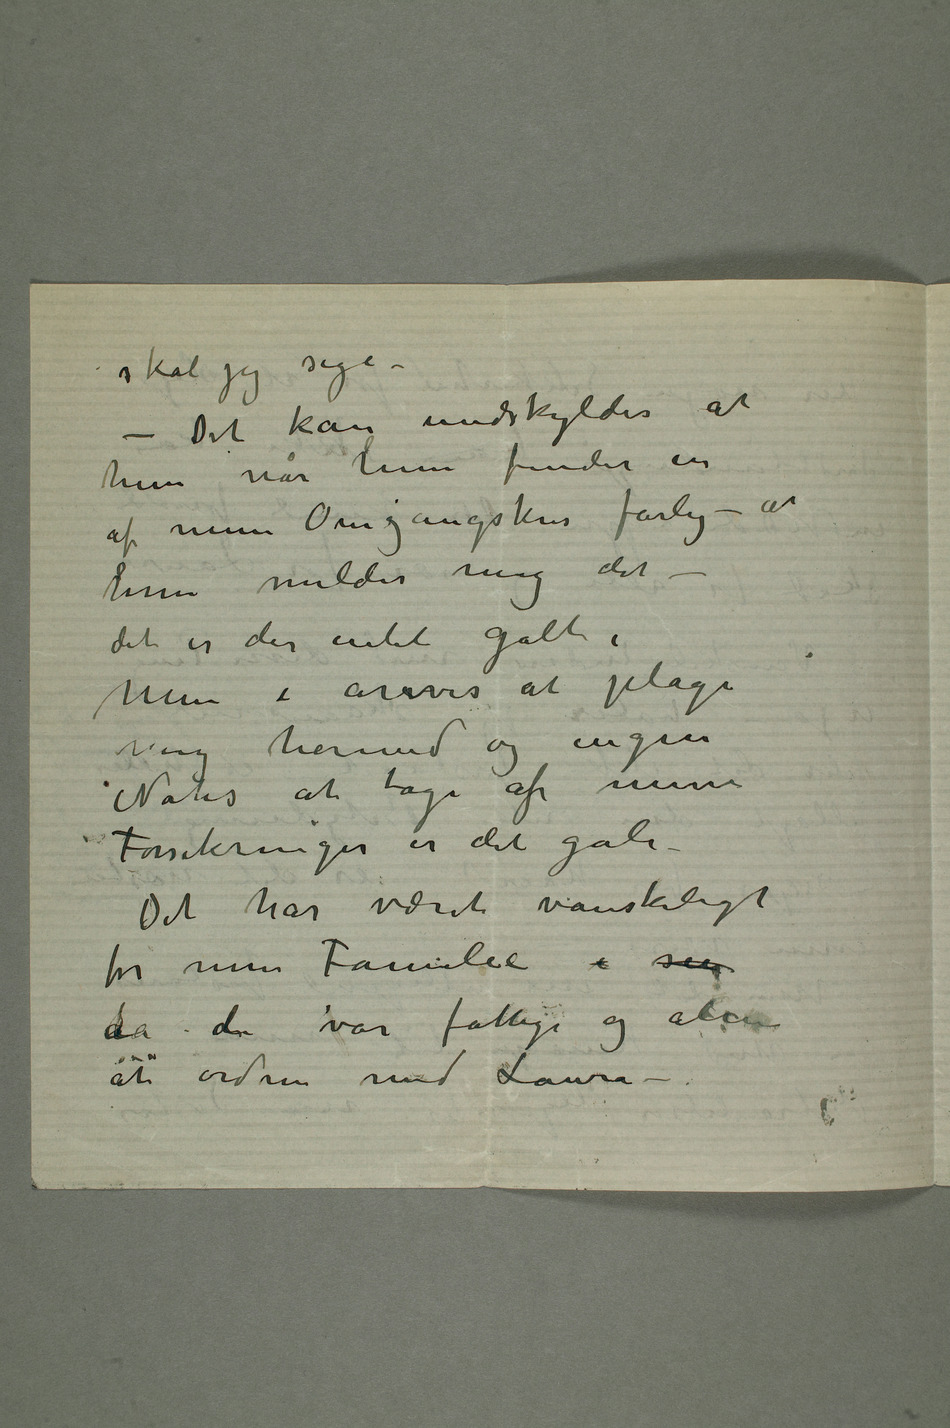 skal jeg sige –
– Det kan undskyldes at
hun når hun finder en
af min Omgangskres farlig – at
hun melder mig det –
det er der intet galt i
Men i åresvis at plage
mig hermed og ingen
Notis at tage af mine
Forsikringer er det gale –
Det har været vanskeligt
for min Familie i sin
da de var fattige og alene
at ordne med Laura –